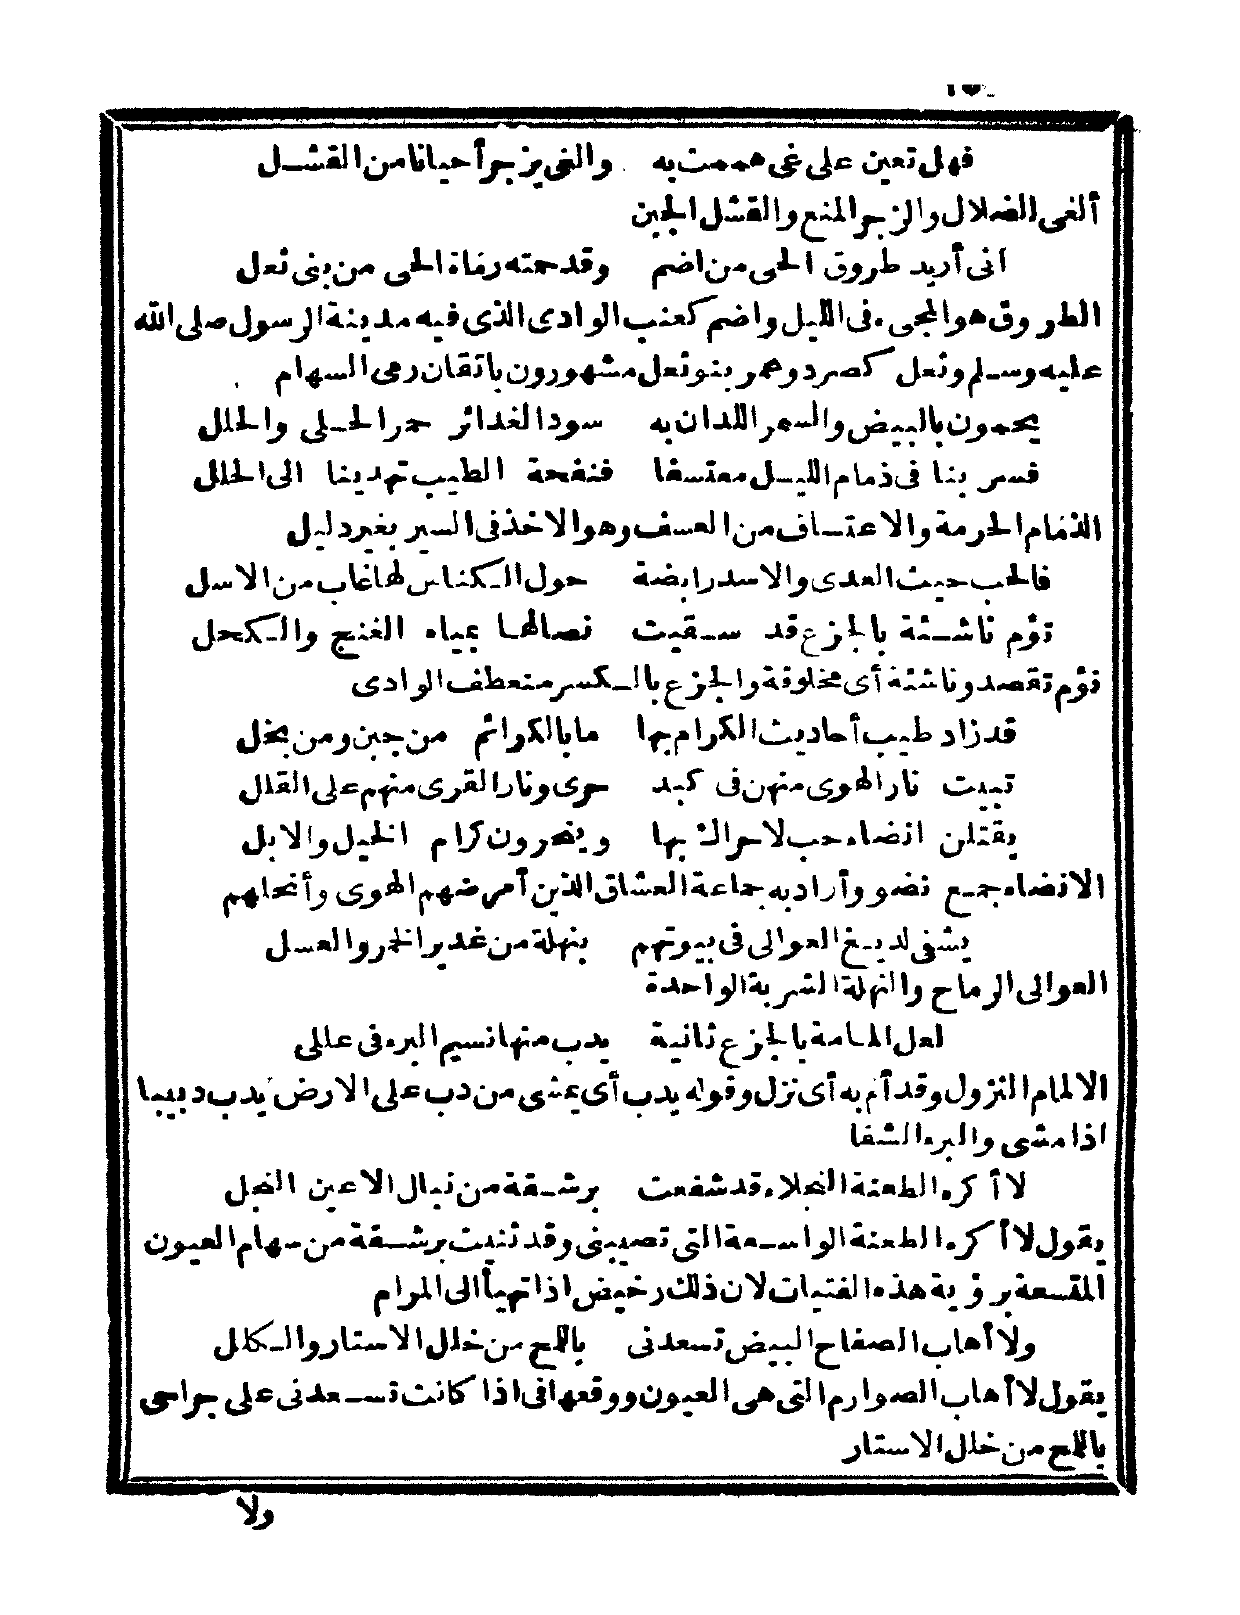 فهل تعين على غى هممت به والغى يزجر أحيانا من القشــل
ألغى الضلال والزجر المنع والقشل الجبن
انى أريد طروق الحى من اضم وقد حمته رماة الحى من بنى ثعل
الطروق هو المجىء فى الليل واضم كعنب الوادى الذى فيه مدينة الرسول صلى الله
عليه وســلم وثعل كصرد وعمر بنو ثعل مشهورون باتقان رمى السهام
يحمون بالبيض والسمر اللدان به سود الغدائر حمر الحــلى والحلل
فسر بنا فى ذمام الليــل معتسفا فنفحة الطيب تهدينا الى الحلل
الذمام الحرمة والاعتــساف من العسف وهو الاخذ فى السير بغير دليل
فالحب حيث العدى والاسد رابضة حول الــكناس لها غاب من الاسل
تؤم ناشــئة بالجزع قد ســقيت نصالها بمياه الغنج والــكحل
تؤم تقصد وناشئة أى مخلوقة والجزع بالــكسر منعطف الوادى
قد زاد طيب أحاديث الكرام بها ما بالكرائم من جبن ومن بخل
تبيت نار الهوى منهن فى كبد حرى ونار القرى منهم على القلل
يقتلن انضاء حب لا حراك بها وينحرون كرام الخيل والابل
الانضاء جمـع نضو وأراد به جماعة العشاق الذين أمرضهم الهوى وأنحلهم
يشفى لديــغ العوالى فى بيوتهم بنهلة من غدير الخمر والعسل
العوالى الرماح والنهلة الشربة الواحدة
لعل المـامة بالجزع ثانية يدب منها نسيم البرء فى عللى
الالمام النزول وقد ألم به أى نزل وقوله يدب أى يمشى من دب على الارض يدب دبيبا
اذا مشى والبرء الشفا
لا أكره الطعنة النجلاء قد شفعت برشــقة من نبال الاعين النجل
يقول لا أكره الطعنة الواســعة التى تصيبنى وقد ثنيت برشــقة من سهام العيون
المتسعة برؤية هذه الفتيات لان ذلك رخيص اذا تهيأ الى المرام
ولا أهاب الصفاح البيض تسعدنى باللمح من خلل الاستار والــكلل
يقول لا أهاب الصوارم التى هى العيون ووقعها فى اذا كانت تســعدنى على جراحى
باللمح من خلل الاستار
ولا